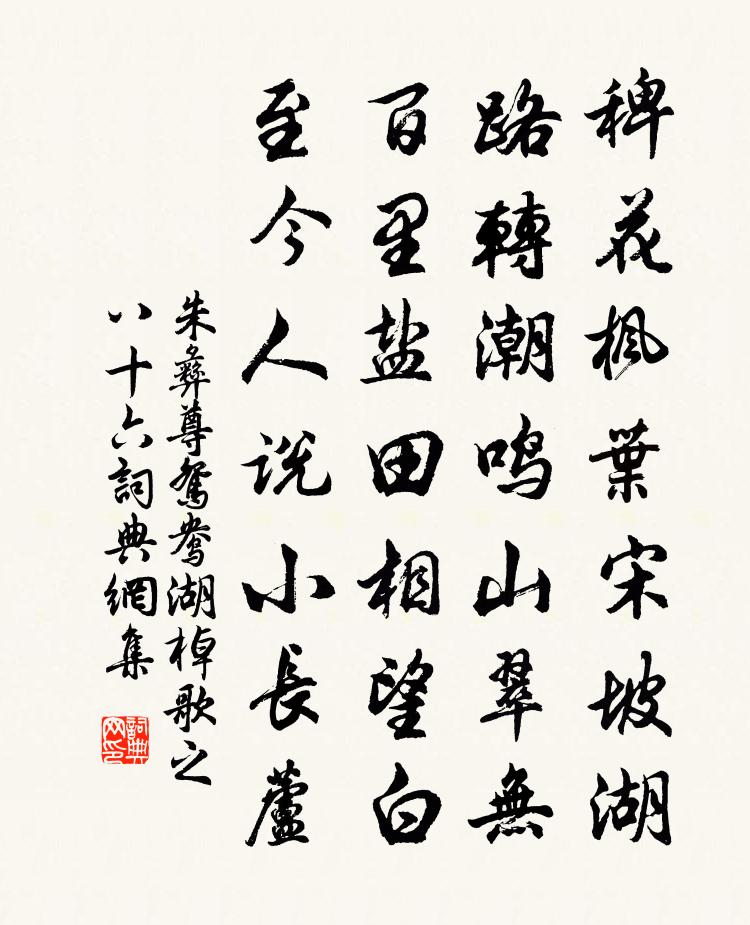 稗花楓葉宋坡湖
路轉潮鳴山翠無
百里盐田相望白
至今人说小長蘆
朱彝尊鴛鴦湖棹歌之
八十六詞典網集
詞典网印